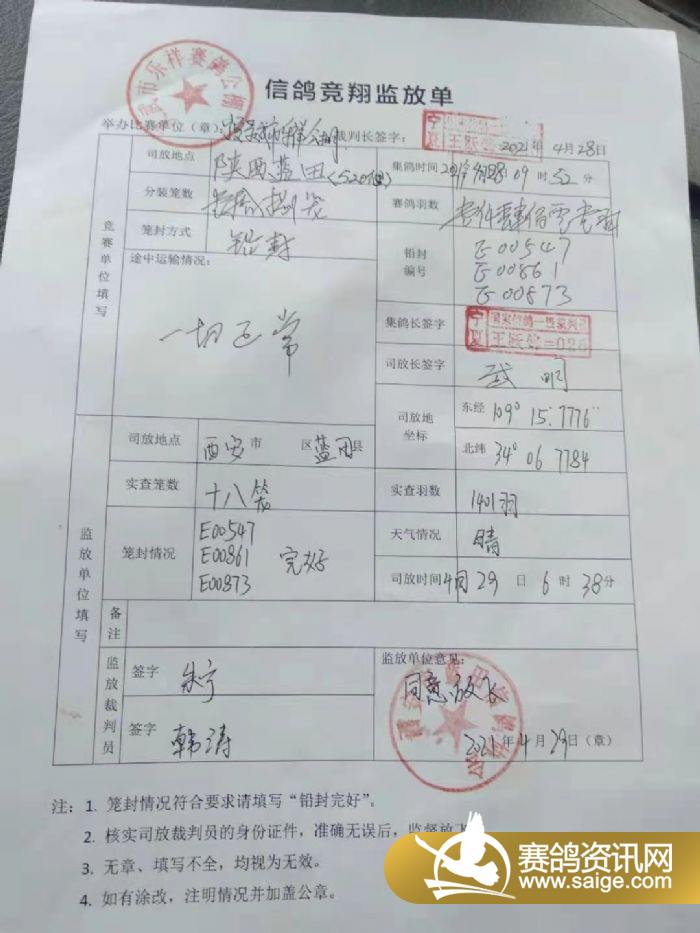 市乐祥赛鸽公棚
信鸽竞翔监放单
举办比赛单位（章）： 裁判长签字： 宁夏 王跃 2021年4月28日
司放地点 陕西蓝田 集鸽时间 09时52分
分装笼数 壹拾捌笼 赛鸽羽数 壹仟肆佰零壹羽
笼封方式 铅封 铅封编号 E00547
E00861
E00873
竞赛单位填写
途中运输情况：
一切正常
集鸽长签字 宁夏 国家信鸽一级裁判员 王跃 026
司放长签字 武明
司放地坐标 东经 109° 15.7776"
北纬 34° 06 7784
监放单位填写
司放地点 西安市 区蓝田县
实查笼数 十八笼 实查羽数 1401羽
笼封情况 E00547
E00861 完好
E00873
天气情况 晴
司放时间 4月29日6时38分
备注
监放裁判员 签字 朱宁
签字 韩涛
监放单位意见：
同意放飞
2021年4月29日（章）
注：1. 笼封情况符合要求请填写“铅封完好”。
2. 核实司放裁判员的身份证件，准确无误后，监督放飞
3. 无章、填写不全，均视为无效。
4. 如有涂改，注明情况并加盖公章。
赛鸽资讯网
www.saige.com